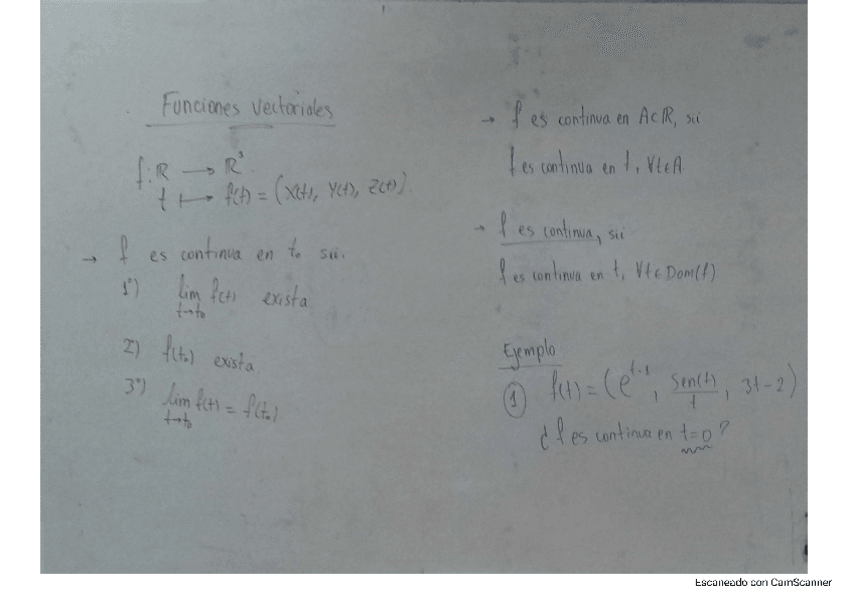 Funciones vectoriales
f: ℝ → ℝ³
t ↦ f(t) = (x(t), y(t), z(t))
→ f es continua en t₀ sii.
1°) lim f(t) exista
t→t₀
2°) f(t₀) exista.
3°) lim f(t) = f(t₀)
t→t₀
→ f es continua en A⊂ℝ, sii
f es continua en t, ∀t∈A
→ f es continua, sii
f es continua en t, ∀t∈Dom(f)
Ejemplo
① f(t) = (e^{t-1}, sen(t)/t, 3t-2)
¿f es continua en t=0?
Escaneado con CamScanner